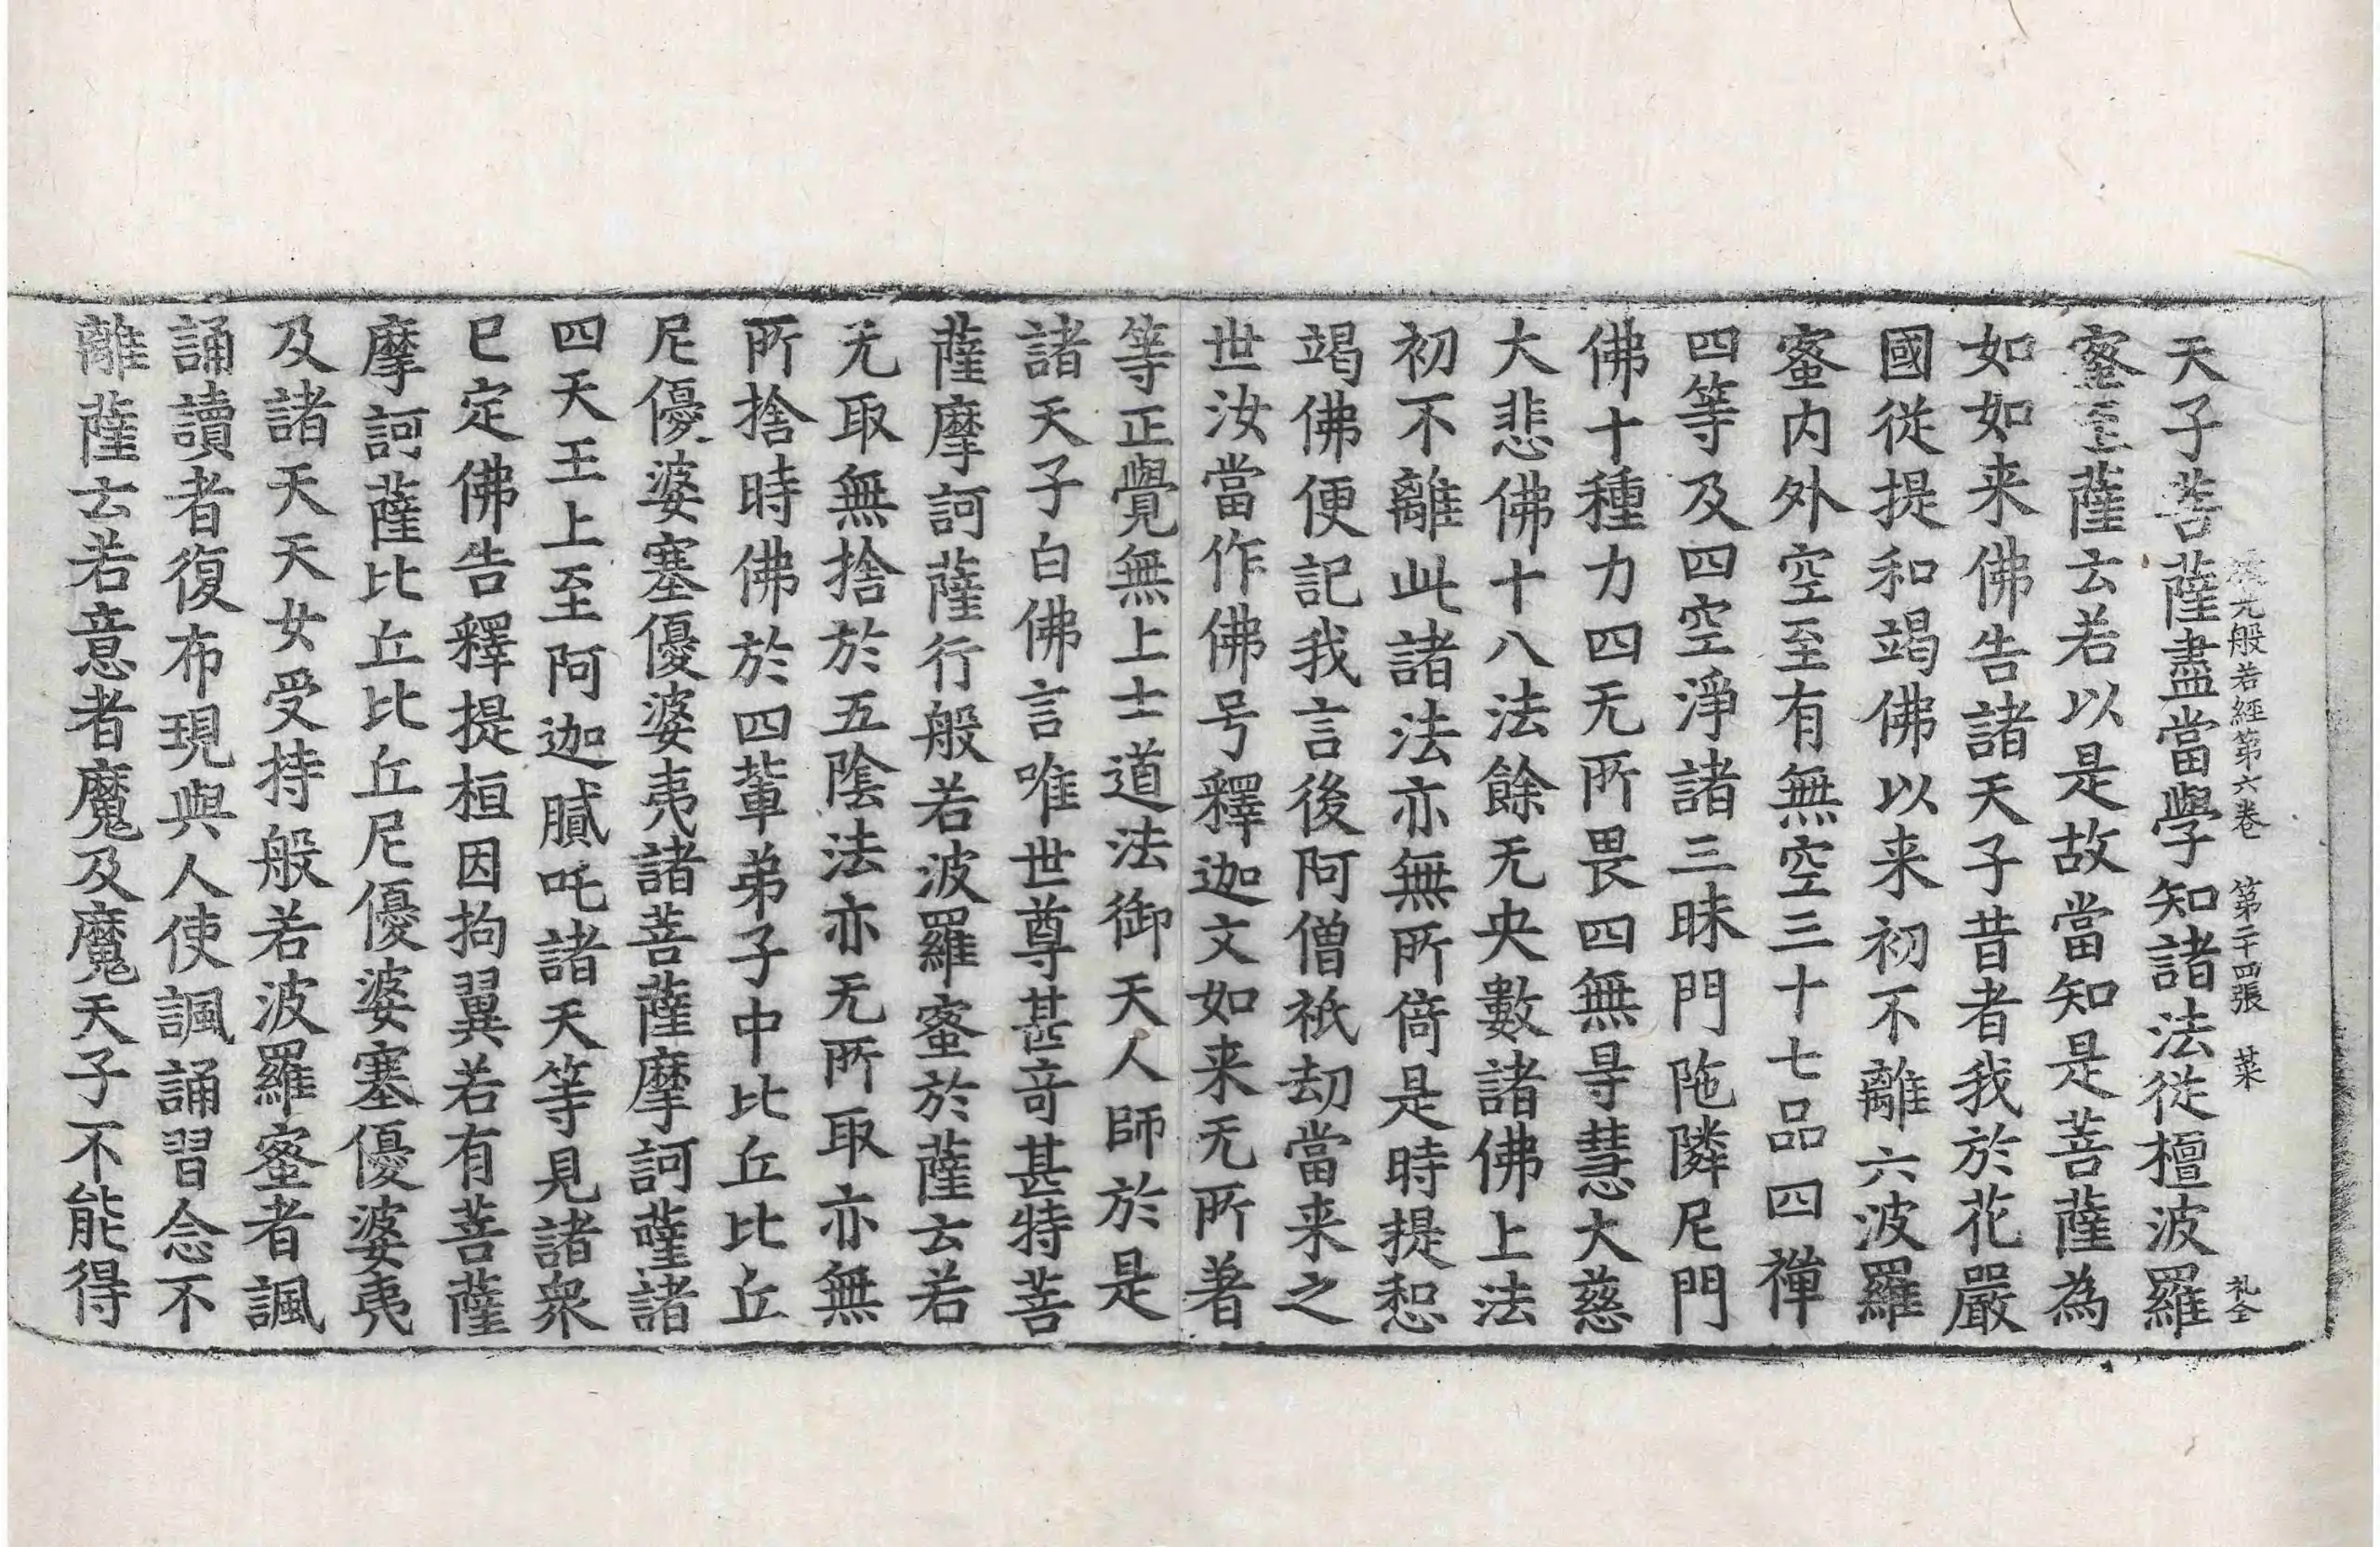 放光般若經第六卷　第二十四張　菜　礼全
天子菩薩盡當學知諸法從檀波羅
蜜至薩云若以是故當知是菩薩為
如如来佛告諸天子昔者我於花嚴
國從提和竭佛以来初不離六波羅
蜜内外空至有無空三十七品四禪
四等及四空淨諸三昧門陁隣尼門
佛十種力四无所畏四無㝵慧大慈
大悲佛十八法餘无央數諸佛上法
初不離此諸法亦無所倚是時提惒
竭佛便記我言後阿僧祇劫當来之
世汝當作佛号釋迦文如来无所著
等正覺無上士道法御天人師於是
諸天子白佛言唯世尊甚奇甚特菩
薩摩訶薩行般若波羅蜜於薩云若
无取無捨於五陰法亦无所取亦無
所捨時佛於四輩弟子中比丘比丘
尼優婆塞優婆夷諸菩薩摩訶薩諸
四天王上至阿迦膩吒諸天等見諸衆
已定佛告釋提桓因拘翼若有菩薩
摩訶薩比丘比丘尼優婆塞優婆夷
及諸天天女受持般若波羅蜜者諷
誦讀者復布現與人使諷誦習念不
離薩云若意者魔及魔天子不能得